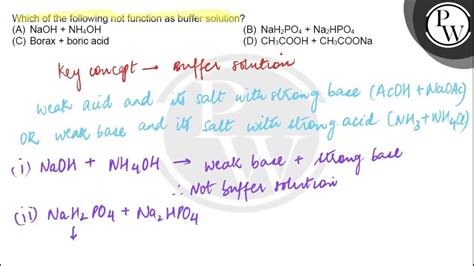 Which of the following not function as buffer solution?
(A) NaOH + NH₄OH (B) NaH₂PO₄ + Na₂HPO₄
(C) Borax + boric acid (D) CH₃COOH + CH₃COONa
PW
Key concept → Buffer solution
weak acid and its salt with strong base (AcOH + NaOAc)
OR weak base and its salt with strong acid (NH₃ + NH₄Cl)
(i) NaOH + NH₄OH → weak base + strong base
∴ Not buffer solution
(ii) NaH₂PO₄ + Na₂HPO₄
↓